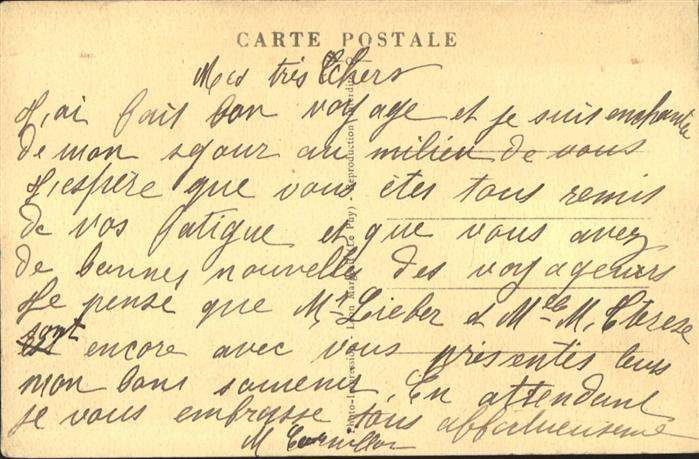 CARTE POSTALE
Mes très Chers
J'ai fait bon voyage et je suis enchantée
de mon sejour au milieu de vous
J'espère que vous êtes tous remis
de vos fatigue et que vous avez
de bonnes nouvelles des voyageurs
Je pense que Mr Lieber et Mlle M. Thérese
sont encore avec vous présentés leurs
mon bons souvenir, En attendant
je vous embrasse tous affectueusement
M